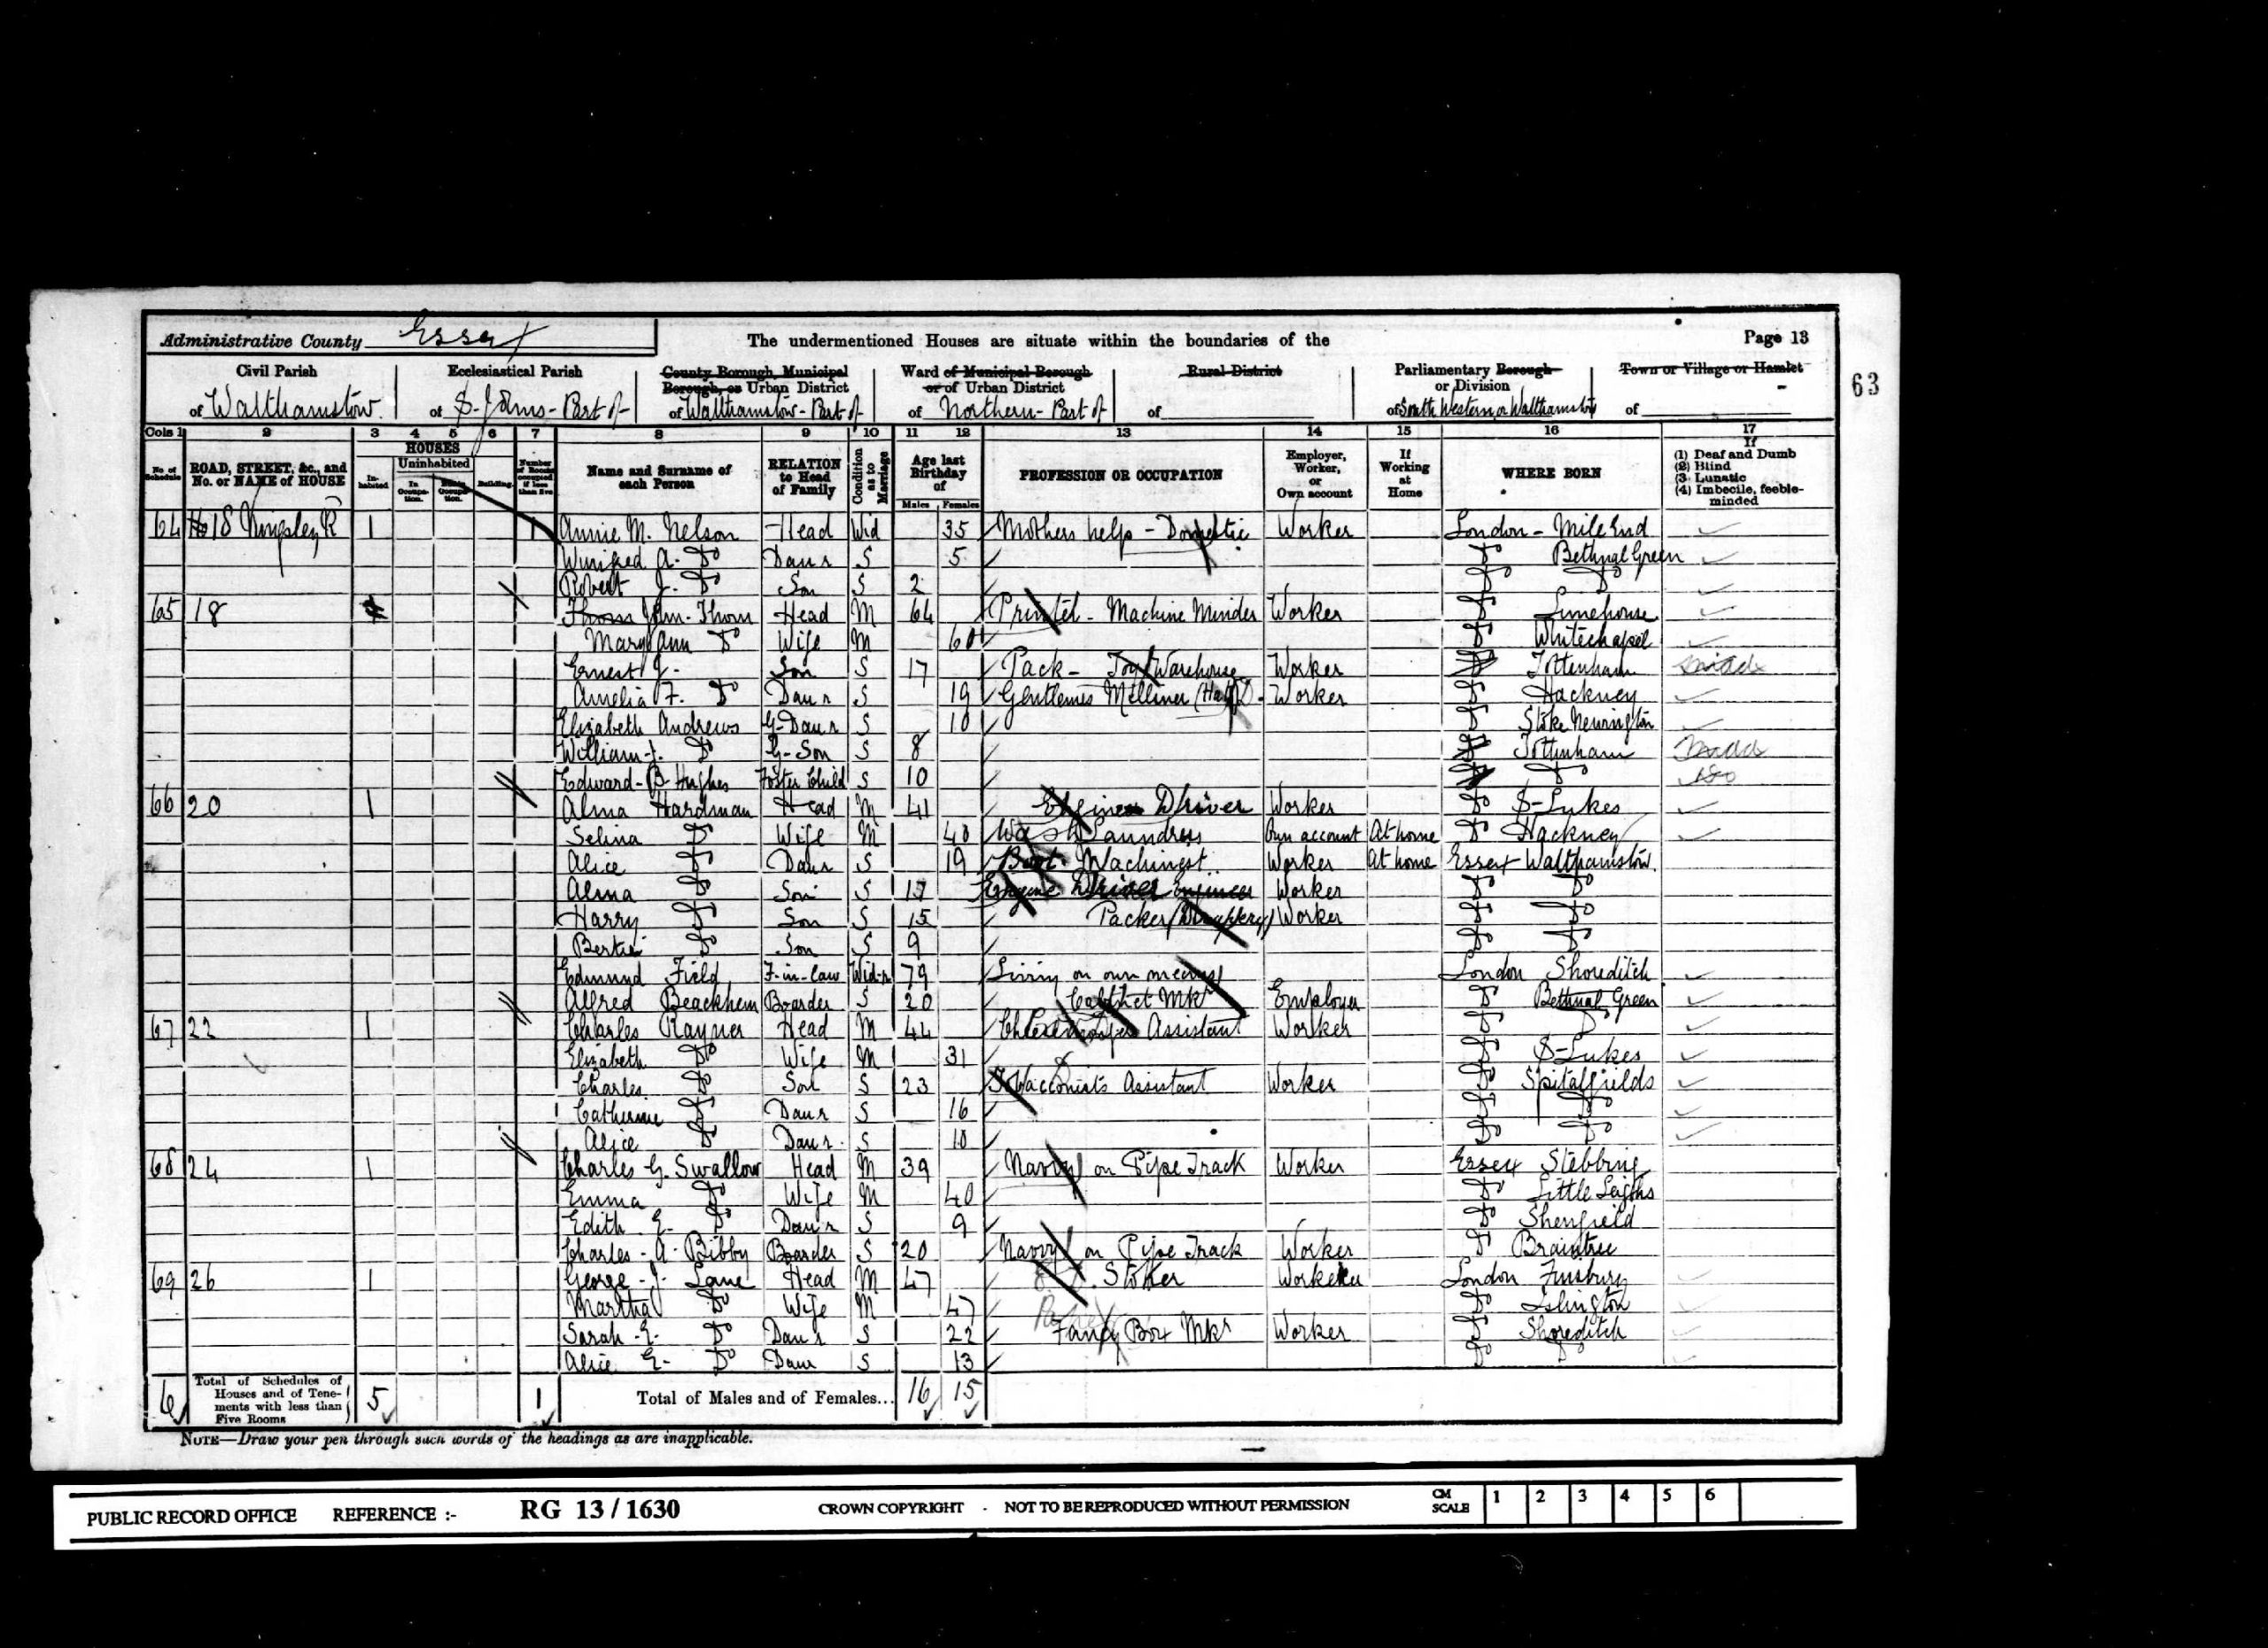 Administrative County Essex The undermentioned Houses are situate within the boundaries of the Page 13
Civil Parish Ecclesiastical Parish County Borough, Municipal Borough, or Urban District Ward of Municipal Borough or of Urban District Rural District Parliamentary Borough or Division Town or Village or Hamlet
of Walthamstow of S. Johns - Part of of Walthamstow - Part of of Northern - Part of of of South Western or Walthamstow of -
63
Cols 1 2 3 4 5 6 7 8 9 10 11 12 13 14 15 16 17
No of Schedule ROAD, STREET, &c., and No. or NAME of HOUSE HOUSES Inhabited Uninhabited In Occupation. Not in Occupation. Building. Number of Rooms occupied if less than five Name and Surname of each Person RELATION to Head of Family Condition as to Marriage Age last Birthday of Males Females PROFESSION OR OCCUPATION Employer, Worker, or Own account If Working at Home WHERE BORN If (1) Deaf and Dumb (2) Blind (3) Lunatic (4) Imbecile, feeble-minded
64 18 1 1 Annie M. Nelson Head Wid 35 Mothers help - Domestic Worker London - Mile End
Winifred A. Do Daur S 5 Do Bethnal Green
Robert J. Do Son S 2 Do Do
65 18 Thom John Thom Head M 64 Printer - Machine Minder Worker Do Limehouse
Mary Ann Do Wife M 60 Do Whitechapel
Ernest J. Son S 17 Pack - Toy Warehouse Worker Do Tottenham Midd
Amelia F. Do Daur S 19 Gentlemens Milliner (Hat) Worker Do Hackney
Elizabeth Andrews G-Daur S 10 Do Stoke Newington
William J. Do G-Son S 8 Do Tottenham Midd
Edward - B Hughes Foster Child S 10 Do Do Do
66 20 1 Alma Hardman Head M 41 Engine Driver Worker Do S-Lukes
Selina Do Wife M 40 Wash Laundress Own account At home Do Hackney
Alice Do Daur S 19 Boot Machinest Worker At home Essex Walthamstow
Alma Do Son S 17 Engine Driver Engineer Worker Do Do
Harry Do Son S 15 Packer (Drapery) Worker Do Do
Bertie Do Son S 9 Do Do
Edmund Field F-in-law Wid-r 79 Living on own means London Shoreditch
Alfred Beackhem Boarder S 20 Cabinet Mkr Employer Do Bethnal Green
67 22 1 Charles Rayner Head M 44 Assistant Worker Do Do
Elizabeth Do Wife M 31 Do S-Lukes
Charles Do Son S 23 Tobacconists Assistant Worker Do Spitalfields
Catherine Do Daur S 16 Do Do
Alice Do Daur. S 10 Do Do
68 24 1 Charles G. Swallow Head M 39 Navvy on Pipe Track Worker Essex Stebbing
Emma Do Wife M 40 Do Little Leighs
Edith E. Do Daur S 9 Do Shenfield
Charles - A - Bibby Boarder S 20 Navvy on Pipe Track Worker Do Braintree
69 26 1 George - J. Lane Head M 47 Stoker Worker London Finsbury
Martha Do Wife M 47 Do Islington
Sarah - E - Do Daur S 22 Fancy Box Mkr Worker Do Shoreditch
Alice E - Do Daur S 13 Do Do
6 Total of Schedules of Houses and of Tenements with less than Five Rooms 5 1 Total of Males and of Females... 16 15
NOTE—Draw your pen through such words of the headings as are inapplicable.
PUBLIC RECORD OFFICE REFERENCE :- RG 13 / 1630 CROWN COPYRIGHT - NOT TO BE REPRODUCED WITHOUT PERMISSION CM SCALE 1 2 3 4 5 6